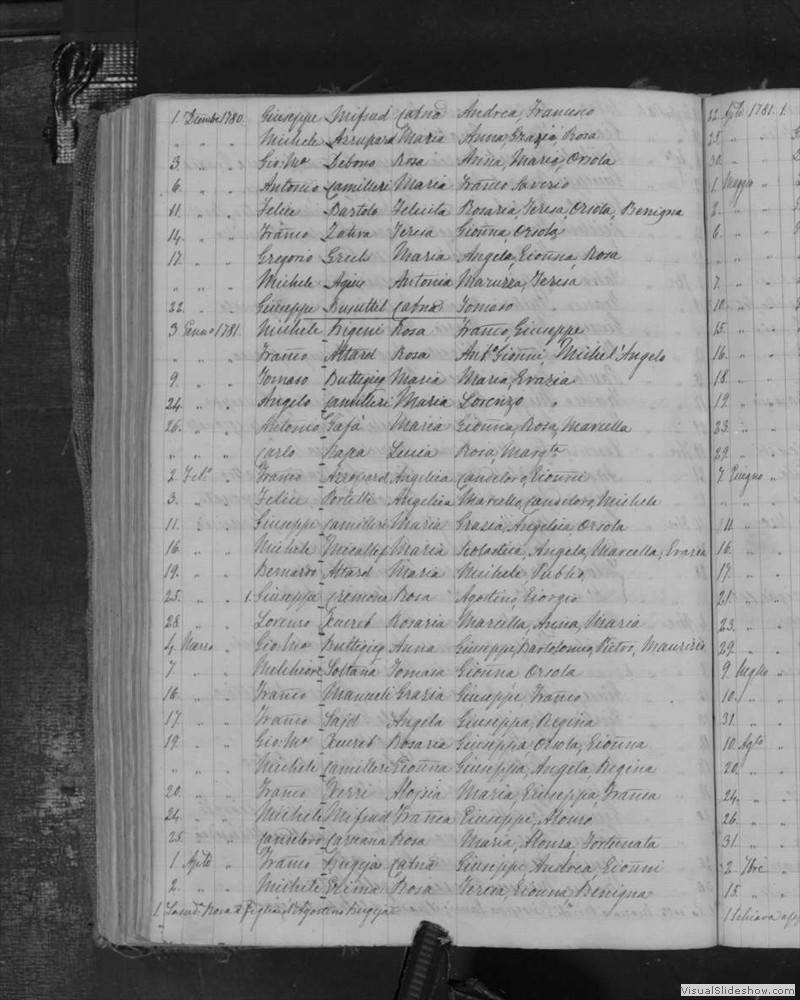 1 Dicembe 1780 Giuseppe Mifsud Catna Andrea, Franceso
" " " Michele Azzupard Maria Anna, Grazia, Rosa
3 " " Gio: Ma Debono Rosa Anna, Maria, Orsola
6. " " Antonio Camilleri Maria Franco Saverio
11. " " Felice Bartolo Felicita Rosaria, Teresa, Orsola, Benigna
14. " " Franco Zahra Teresa Gionna, Orsola
17. " " Gregorio Grech Maria Angela, Gionna, Rosa
" " " Michele Agius Antonia Maruzza, Teresa
22. " " Giuseppe Busuttil Catna Tomaso
3 Genno 1781. Michele Rosa Franco, Giuseppe
" " " Franco Attard Rosa Anto Gionni, Michel'Angelo
9. " " Tomaso Buttigieg Maria Maria, Evazia
24. " " Angelo Camilleri Maria Lorenzo
26. " " Antonio Gafà Maria Gionna, Rosa, Marcella
" " " Carlo Lucia Rosa, Margta
2. Feb. " Franco Azzopard Angelica Canceloro, Gionni
3. " " Felice Portelli Angelica Marcello, Canceloro, Michele
11. " " Giuseppe Camilleri Maria Grazia, Angelica, Orsola
16. " " Michele Micallef Maria Scolastica, Angela, Marcella, Evazia
19. " " Bernardo Attard Maria Michele, Publio,
25. " " 1. Giuseppe Cremona Rosa Agostino, Giorgio
28. " " Lorenzo Xuereb Rosaria Marcella, Anna, Maria
4. Marzo " Gio Ma Buttigieg Anna Giuseppe, Bartolomeo, Pietro, Maurizio
7. " " Melchiore Soltana Tomasa Gionna Orsola
16. " " Franco Manueli Grazia Giuseppe, Franco
17. " " Franco Sajd Angela Giuseppa, Regina
19. " " Gio: Ma Xuereb Rosaria Giuseppa, Orsola, Gionna
" " " Michele Camilleri Gionna Giuseppa, Angela, Regina
20. " " Franco Xerri Aloysia Maria, Giuseppa, Franca
24. " " Michele Mifsud Franca Giuseppe, Alonso
25. " " Canceloro Caruana Rosa Maria, Alonsa, Fortunata
1. Aple " Franco Bugeja Catna Giuseppe, Andrea, Gionni
2. " " Michele Rosa Teresa, Gionna, Benigna
1. Rosa è figlia d'Agostino Bugeja
22. Aple 1781. 1.
25. " "
30. " "
1. Maggio "
2. " "
6. " "
" " "
7. " "
10. " "
15. " "
16. " "
18. " "
19. " "
23. " "
29. " "
7. Giugno "
" " "
11. " "
16. " "
17. " "
21. " "
23. " "
29. " "
9. Luglio "
10. " "
31. " "
10. Agto "
20. " "
24. " "
26. " "
31. " "
2. 7bre "
15. " "
1 Schiava
VisualSlideshow.com